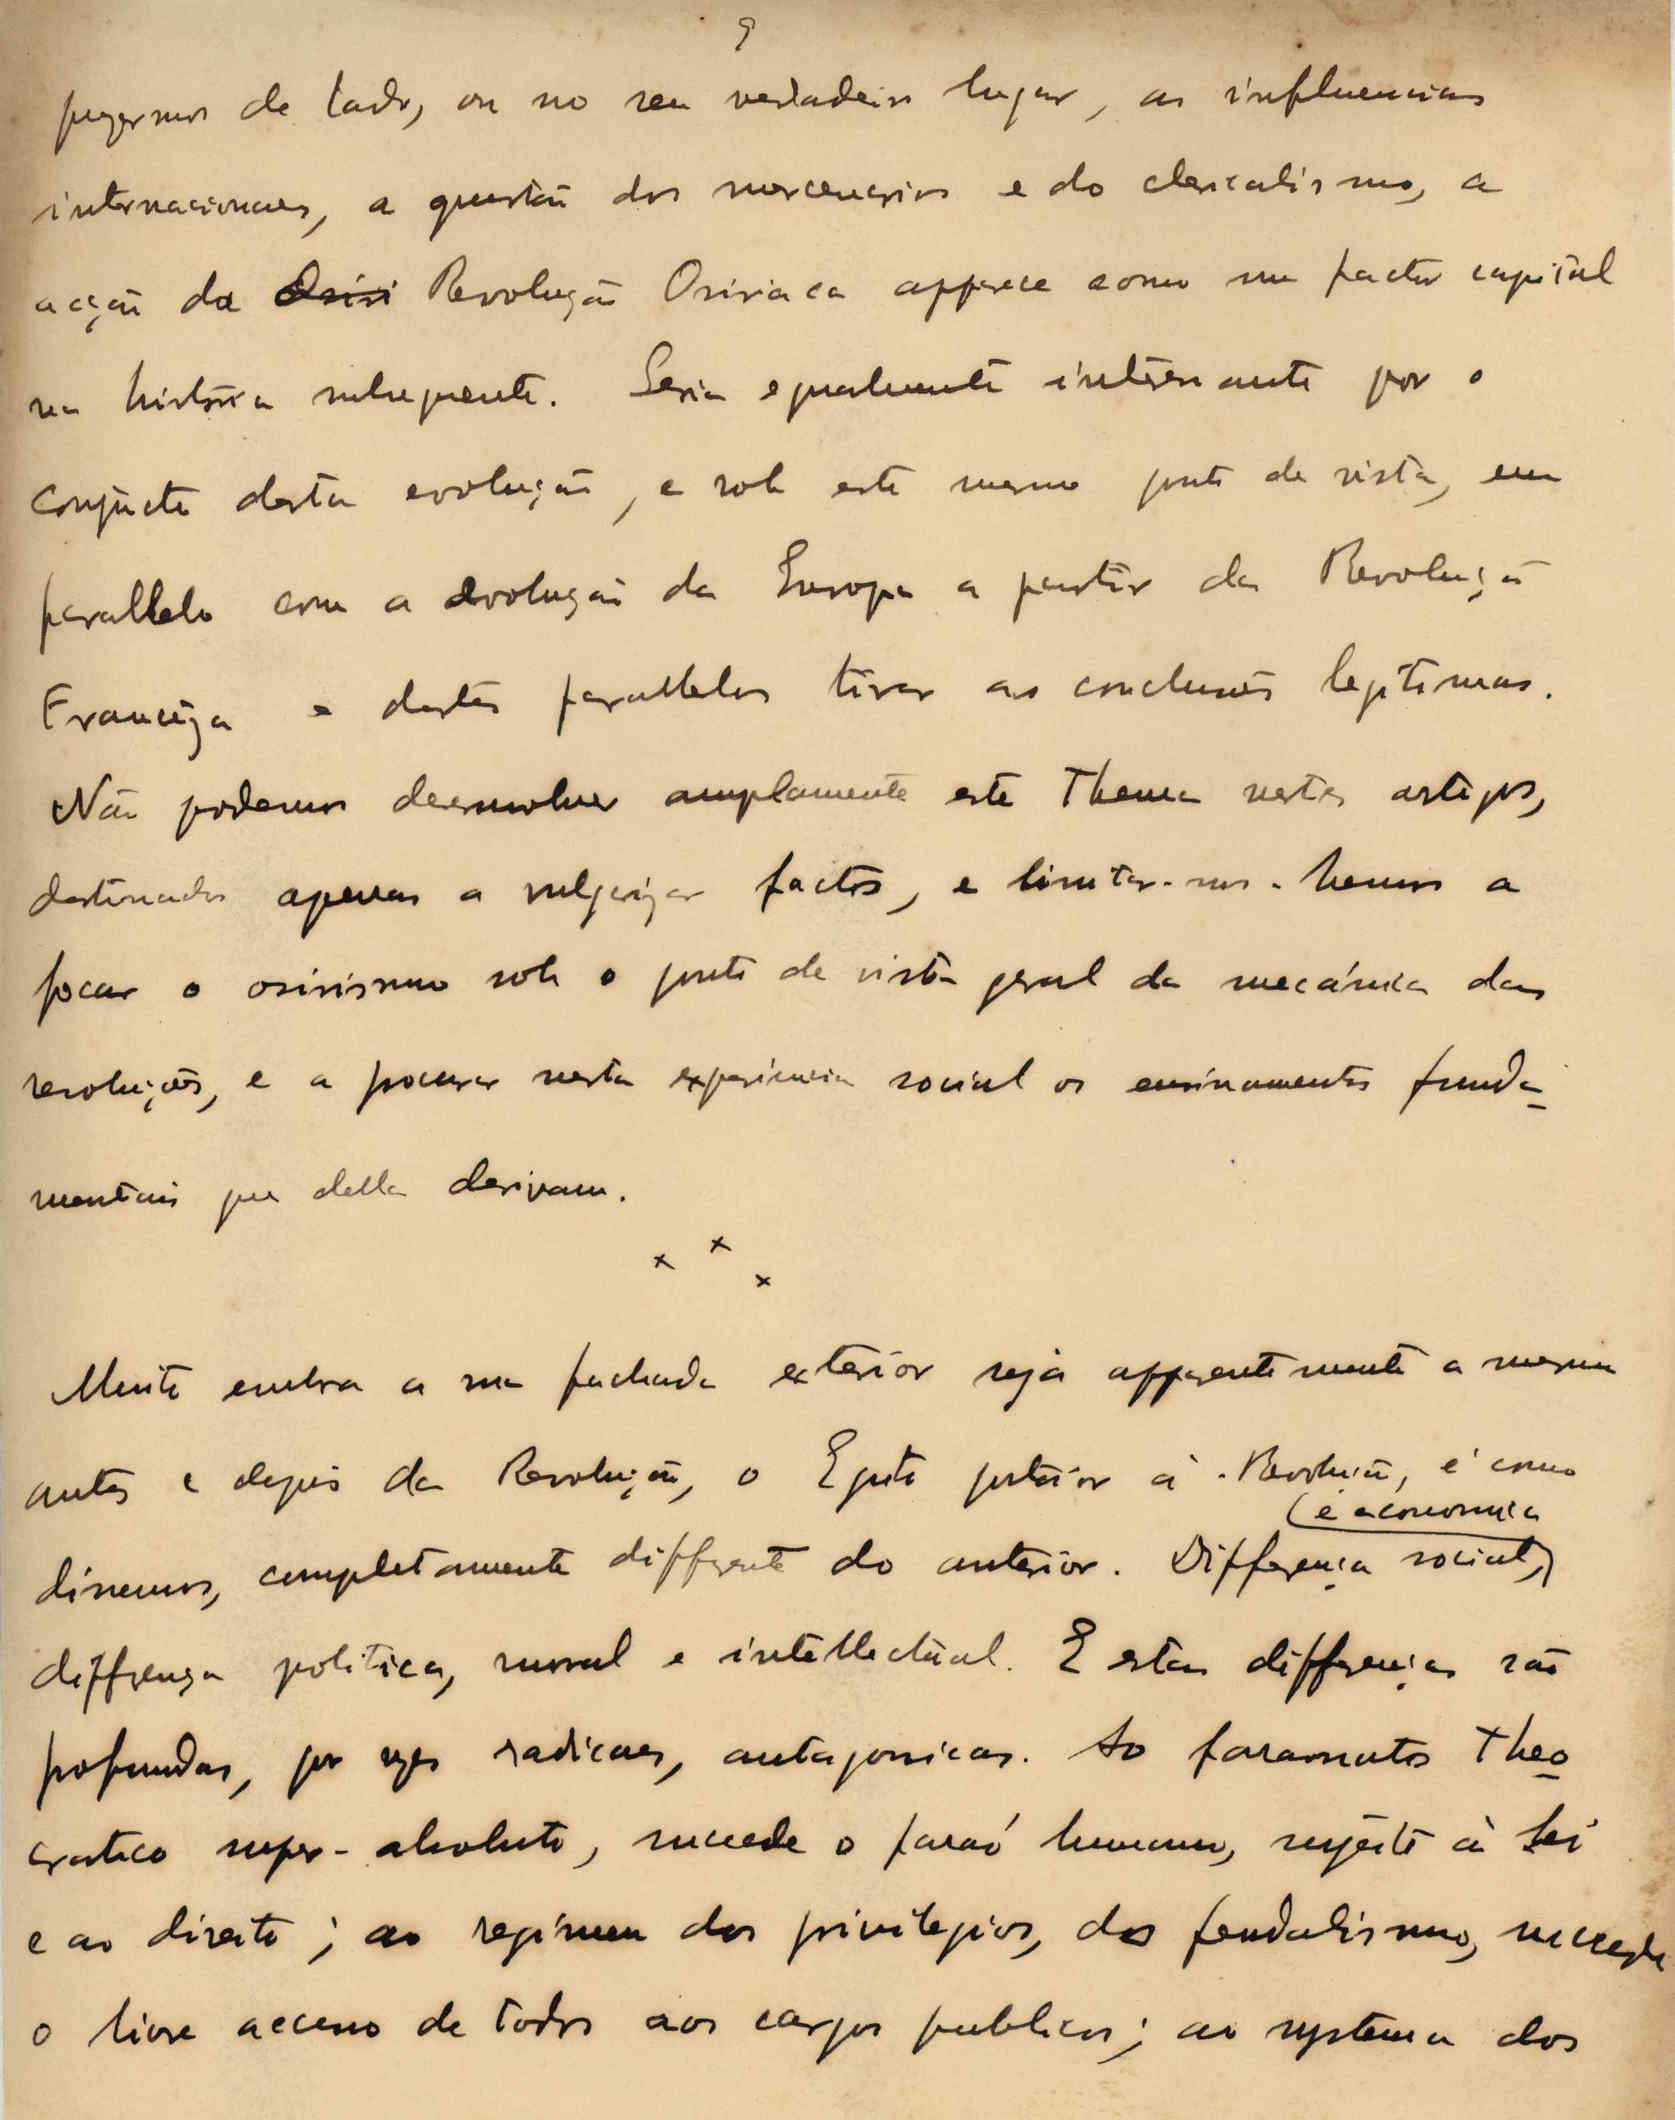 9
puzermos de lado, ou no seu verdadeiro lugar, as influencias
internacionaes, a questão dos mercenarios e do clericalismo, a
acção da Osiri Revolução Osiriaca apparece como um factor capital
na historia subsequente. Seria egualmente interessante por o
conjucto desta evolução, e sob este mesmo ponto de vista, em
parallelo com a evolução da Europa a partir da Revolução
Franceza e destes parallelos tirar as conclusões legitimas.
Não podemos desenvolver amplamente este thema nestes artigos,
destinados apenas a vulgarizar factos, e limitar-nos-hemos a
focar o osirismo sob o ponto de vista geral da mecánica das
revoluções, e a procurar nesta experiencia social os ensinamentos funda-
mentais que della derivam.
x x x
Muito embora a sua fachada exterior seja apparentemente a mesma
antes e depois da Revolução, o Egito posterior á Revolução, é como
(e economica
dissemos, completamente differente do anterior. Differença social,)
differença politica, moral e intellectual. E estas differenças são
profundas, por vezes radicaes, antagonicas. Ao theo-
cratico super-absoluto, succede o faraó humano, sujeito à lei
e ao direito; ao regímen dos privilegios, dos feudalismo, succede
o livre accesso de todos aos cargos publicos; ao systema dos